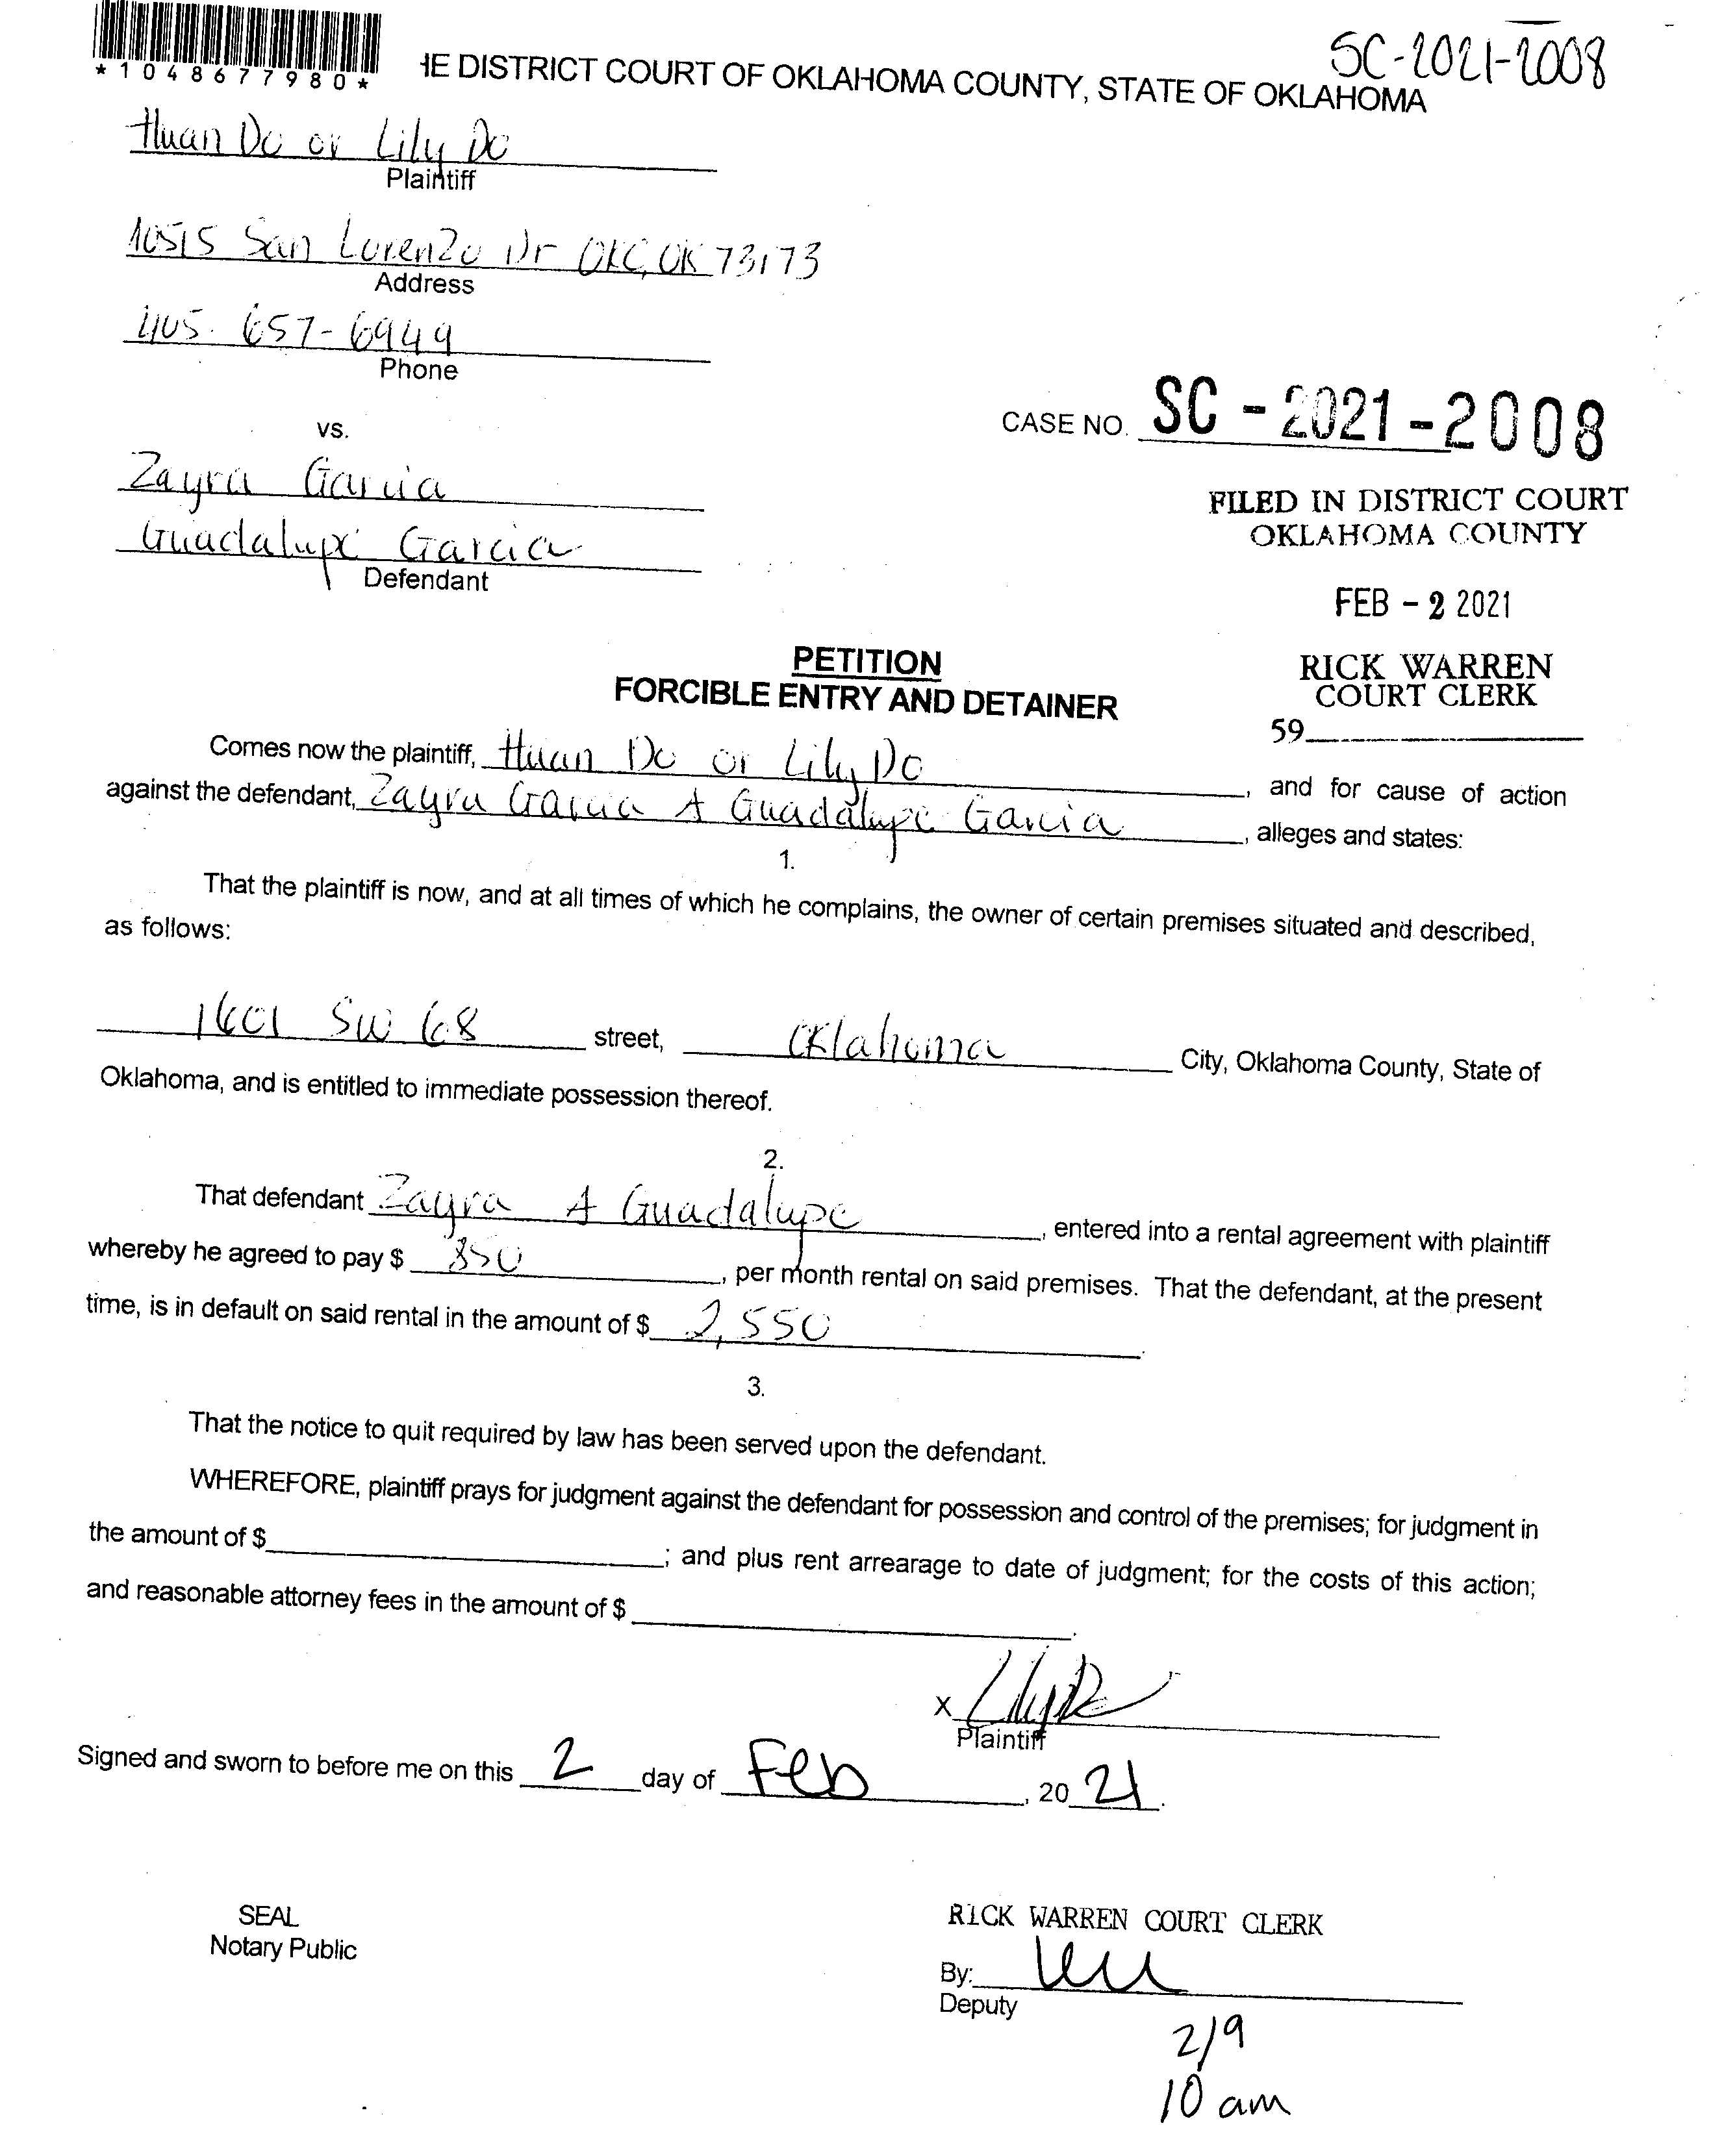 SC-2021-2008
*1048677980*
HE DISTRICT COURT OF OKLAHOMA COUNTY, STATE OF OKLAHOMA
Huan Do or Lily Do
Plaintiff
10515 San Lorenzo Dr OKC, OK 73173
Address
405. 657-6949
Phone
vs.
CASE NO. SC-2021-2008
Zayra Garcia
Guadalupe Garcia
Defendant
FILED IN DISTRICT COURT
OKLAHOMA COUNTY
FEB - 2 2021
RICK WARREN
COURT CLERK
59
PETITION
FORCIBLE ENTRY AND DETAINER
Comes now the plaintiff, Huan Do or Lily Do, and for cause of action
against the defendant, Zayra Garcia & Guadalupe Garcia, alleges and states:
1.
That the plaintiff is now, and at all times of which he complains, the owner of certain premises situated and described,
as follows:
1601 SW 68 street, Oklahoma City, Oklahoma County, State of
Oklahoma, and is entitled to immediate possession thereof.
2.
That defendant Zayra & Guadalupe, entered into a rental agreement with plaintiff
whereby he agreed to pay $ 850, per month rental on said premises. That the defendant, at the present
time, is in default on said rental in the amount of $ 2,550.
3.
That the notice to quit required by law has been served upon the defendant.
WHEREFORE, plaintiff prays for judgment against the defendant for possession and control of the premises; for judgment in
the amount of $ ; and plus rent arrearage to date of judgment; for the costs of this action;
and reasonable attorney fees in the amount of $ .
X
Plaintiff
Signed and sworn to before me on this 2 day of Feb, 2021.
SEAL
Notary Public
RICK WARREN COURT CLERK
By:
Deputy
2/9
10 am